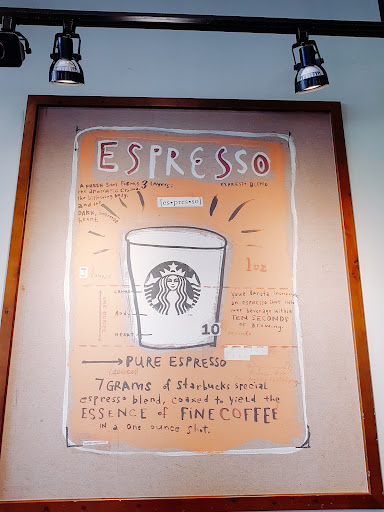 ESPRESSO
ESPRESSO BLEND
A PERFECT SHOT FORMS 3 LAYERS:
the aromatic crema,
the lightning body,
and the
DARK, intense
heart
[es•pres•so]
3 layers
1oz
CREMA
BODY
HEART
10
seconds
your barista introduces
an espresso shot into
your beverage within
TEN SECONDS
of Brewing.
PURE ESPRESSO
7 GRAMS of Starbucks special
espresso blend, coaxed to yield the
ESSENCE of FINE COFFEE
IN a one ounce shot.